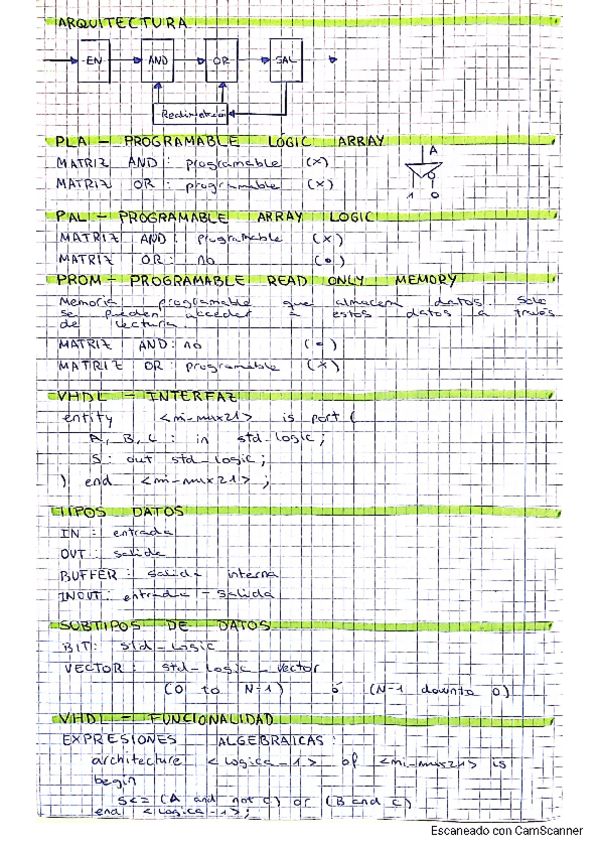 ARQUITECTURA
EN AND OR SAL
PLA - PROGRAMABLE LÓGIC ARRAY
A
MATRIZ AND: programable (x)
MATRIZ OR: programable (x)
1 0
PAL - PROGRAMABLE ARRAY LOGIC
MATRIZ AND: programable (x)
MATRIZ OR: no (•)
PROM - PROGRAMABLE READ ONLY MEMORY
Memoria programable que almacena datos. Solo
se pueden acceder a estos datos a través
de lectura.
MATRIZ AND: no (•)
MATRIZ OR: programable (x)
VHDL - INTERFAZ
entity <mi_mux21> is port (
A, B, C : in std_logic;
S: out std_logic;
) end <mi_mux21>;
TIPOS DATOS
IN: entrada
OUT: salida
BUFFER: salida interna
INOUT: entrada - salida
SUBTIPOS DE DATOS
BIT: std_logic
VECTOR: std_logic_vector
(0 to N-1) ó (N-1 downto 0)
VHDL - FUNCIONALIDAD
EXPRESIONES ALGEBRAICAS:
architecture <logica_1> of <mi_mux21> is
begin
S<= (A and not C) or (B and C)
end <logica_1>;
Escaneado con CamScanner